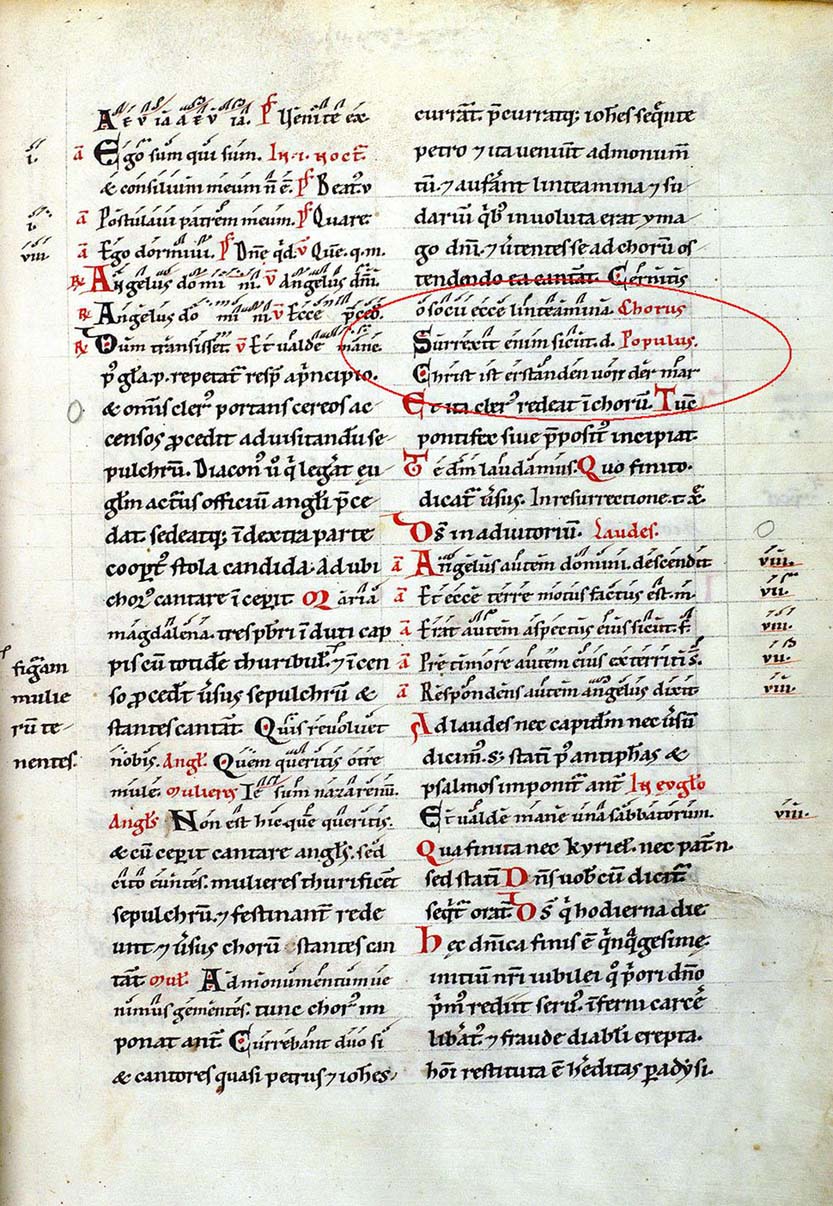 Aevia aevia. Venite ex
i. a Ego sum qui sum. In .i. noct.
& consilium meum n̄ ē. Ps Beat. v
i. a Postulavi patrem meum. Ps Quare
viii a Ego dormivi. Ps Dn̄e q̇d. V Que. q. m.
R Angelus domini. V Angelus dn̄i.
R Angelus domini. V Ecce p̄ced.
R Dum transisset. V Et valde mane.
p̱ gl̄a. p. repetat̄ resp̄ a p̱ncipio.
& omīs cler᷒ portans cereos ac
censos ꝓcedit ad visitandū se
pulchrū. Diacon᷒ v̊ q̇ legerat eu
glm̄ acturus officiū angl̄i p̄ce
dat sedeatq; ī dextra parte
coop̱t᷒ stola candida. Ad ubi
chor᷒ cantare īceperit Maria
magdalena. tres pb̄ri īduti cap
pis cū totidē thuribul̄ ⁊ īcen
so ꝓcedūt v̓sus sepulchrū &
stantes cantāt. Quis revolvet
nobis. Angl̄. Quem queritis otre
mule. Mulieres Ie sum nazarenū.
Angl̄s Non est hic que queritis.
& cū ceperit cantare angl̄s. sed
cito euntes. mulieres thurificent
sepulchrū. ⁊ festinant̄ rede
unt ⁊ v̓sus chorū stantes can
tāt. Mul̄. Ad monumentum ve
nimus gementes. tunc chor᷒ im
ponat ant̄. Currebant duo si
& cantores quasi petrus ⁊ ioh̄es
figūram
mulie
rū te
nentes.
currāt. p̄curratq; ioh̄es seq̄nte
petro ⁊ ita veniūt ad monumn̄
tū. ⁊ aufāt linteamina ⁊ su
dariū qib᷒ involuta erat yma
go dn̄i. ⁊ v̓tentes se ad chorū os
tendendo ea cantāt. Cernitis
o socii ecce linteamina. Chorus
Surrexit enim sicut. d. Populus.
Christ ist erstanden von der mar
Et ita cler᷒ redeat ī chorū. Tūc
pontifex sive p̄posit᷒ incipiat.
Te dm̄ laudamus. Quo finito.
dicat̄ v̓sus. In resurrectione. t. x̄.
Ds̄ in adiutoriū. Laudes.
a Angelus autem domini descendit viii.
a Et ecce terre motus factus est m̄. vii.
a Erat autem aspectus eius sicut f̄ viii.
a Pre timore autem eius exterriti s̄. vii.
a Respondens autem angelus dixit viii.
Ad laudes nec capitlm̄ nec v̓sū
dicim᷒. s; statī p᷒ antiph̄as &
psalmos imponit̄ ant̄ In evgl̄o
Et valde mane una sabbatorum. viii.
Qua finita nec kyriel̄. nec pat̄ n̄.
sed statī Dn̄s vob̄cū dicit̄
seq̄t̄ orat̄. Ds̄ q̇ hodierna die
Hec dn̄ica finis ē q̇nq̇gesime
initiū nr̄i iubilei q̇ p̱ori dn̄o
p̱m᷒ redit serv᷒. īferni carcē
libāt᷒. ⁊ fraude diabl̄i erepta.
hōi restituta ē h̓editas paradysi.